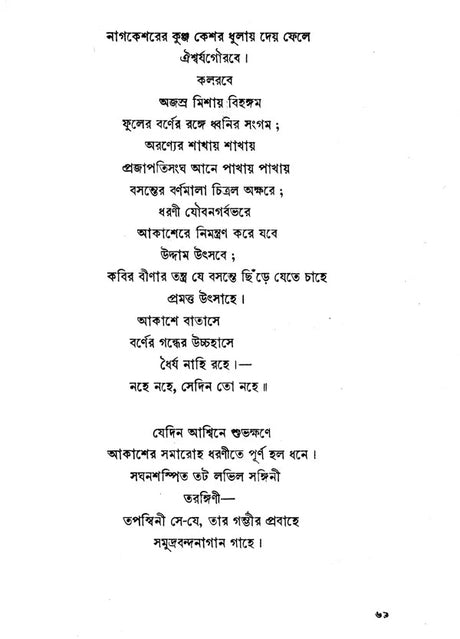 নাগকেশরের কুঞ্জ কেশর ধুলায় দেয় ফেলে
ঐশ্বর্যগৌরবে।
কলরবে
অজস্র মিশায় বিহঙ্গম
ফুলের বর্ণের রঙ্গে ধ্বনির সংগম ;
অরণ্যের শাখায় শাখায়
প্রজাপতিসংঘ আনে পাখায় পাখায়
বসন্তের বর্ণমালা চিত্রল অক্ষরে ;
ধরণী যৌবনগর্বভরে
আকাশেরে নিমন্ত্রণ করে যবে
উদ্দাম উৎসবে ;
কবির বীণার তন্ত্র যে বসন্তে ছিঁড়ে যেতে চাহে
প্রমত্ত উৎসাহে।
আকাশে বাতাসে
বর্ণের গন্ধের উচ্চহাসে
ধৈর্য নাহি রহে।—
নহে নহে, সেদিন তো নহে॥
যেদিন আশ্বিনে শুভক্ষণে
আকাশের সমারোহ ধরণীতে পূর্ণ হল ধনে।
সঘনশস্পিত তট লভিল সঙ্গিনী
তরঙ্গিণী—
তপস্বিনী সে-যে, তার গম্ভীর প্রবাহে
সমুদ্রবন্দনাগান গাহে।
৬৯